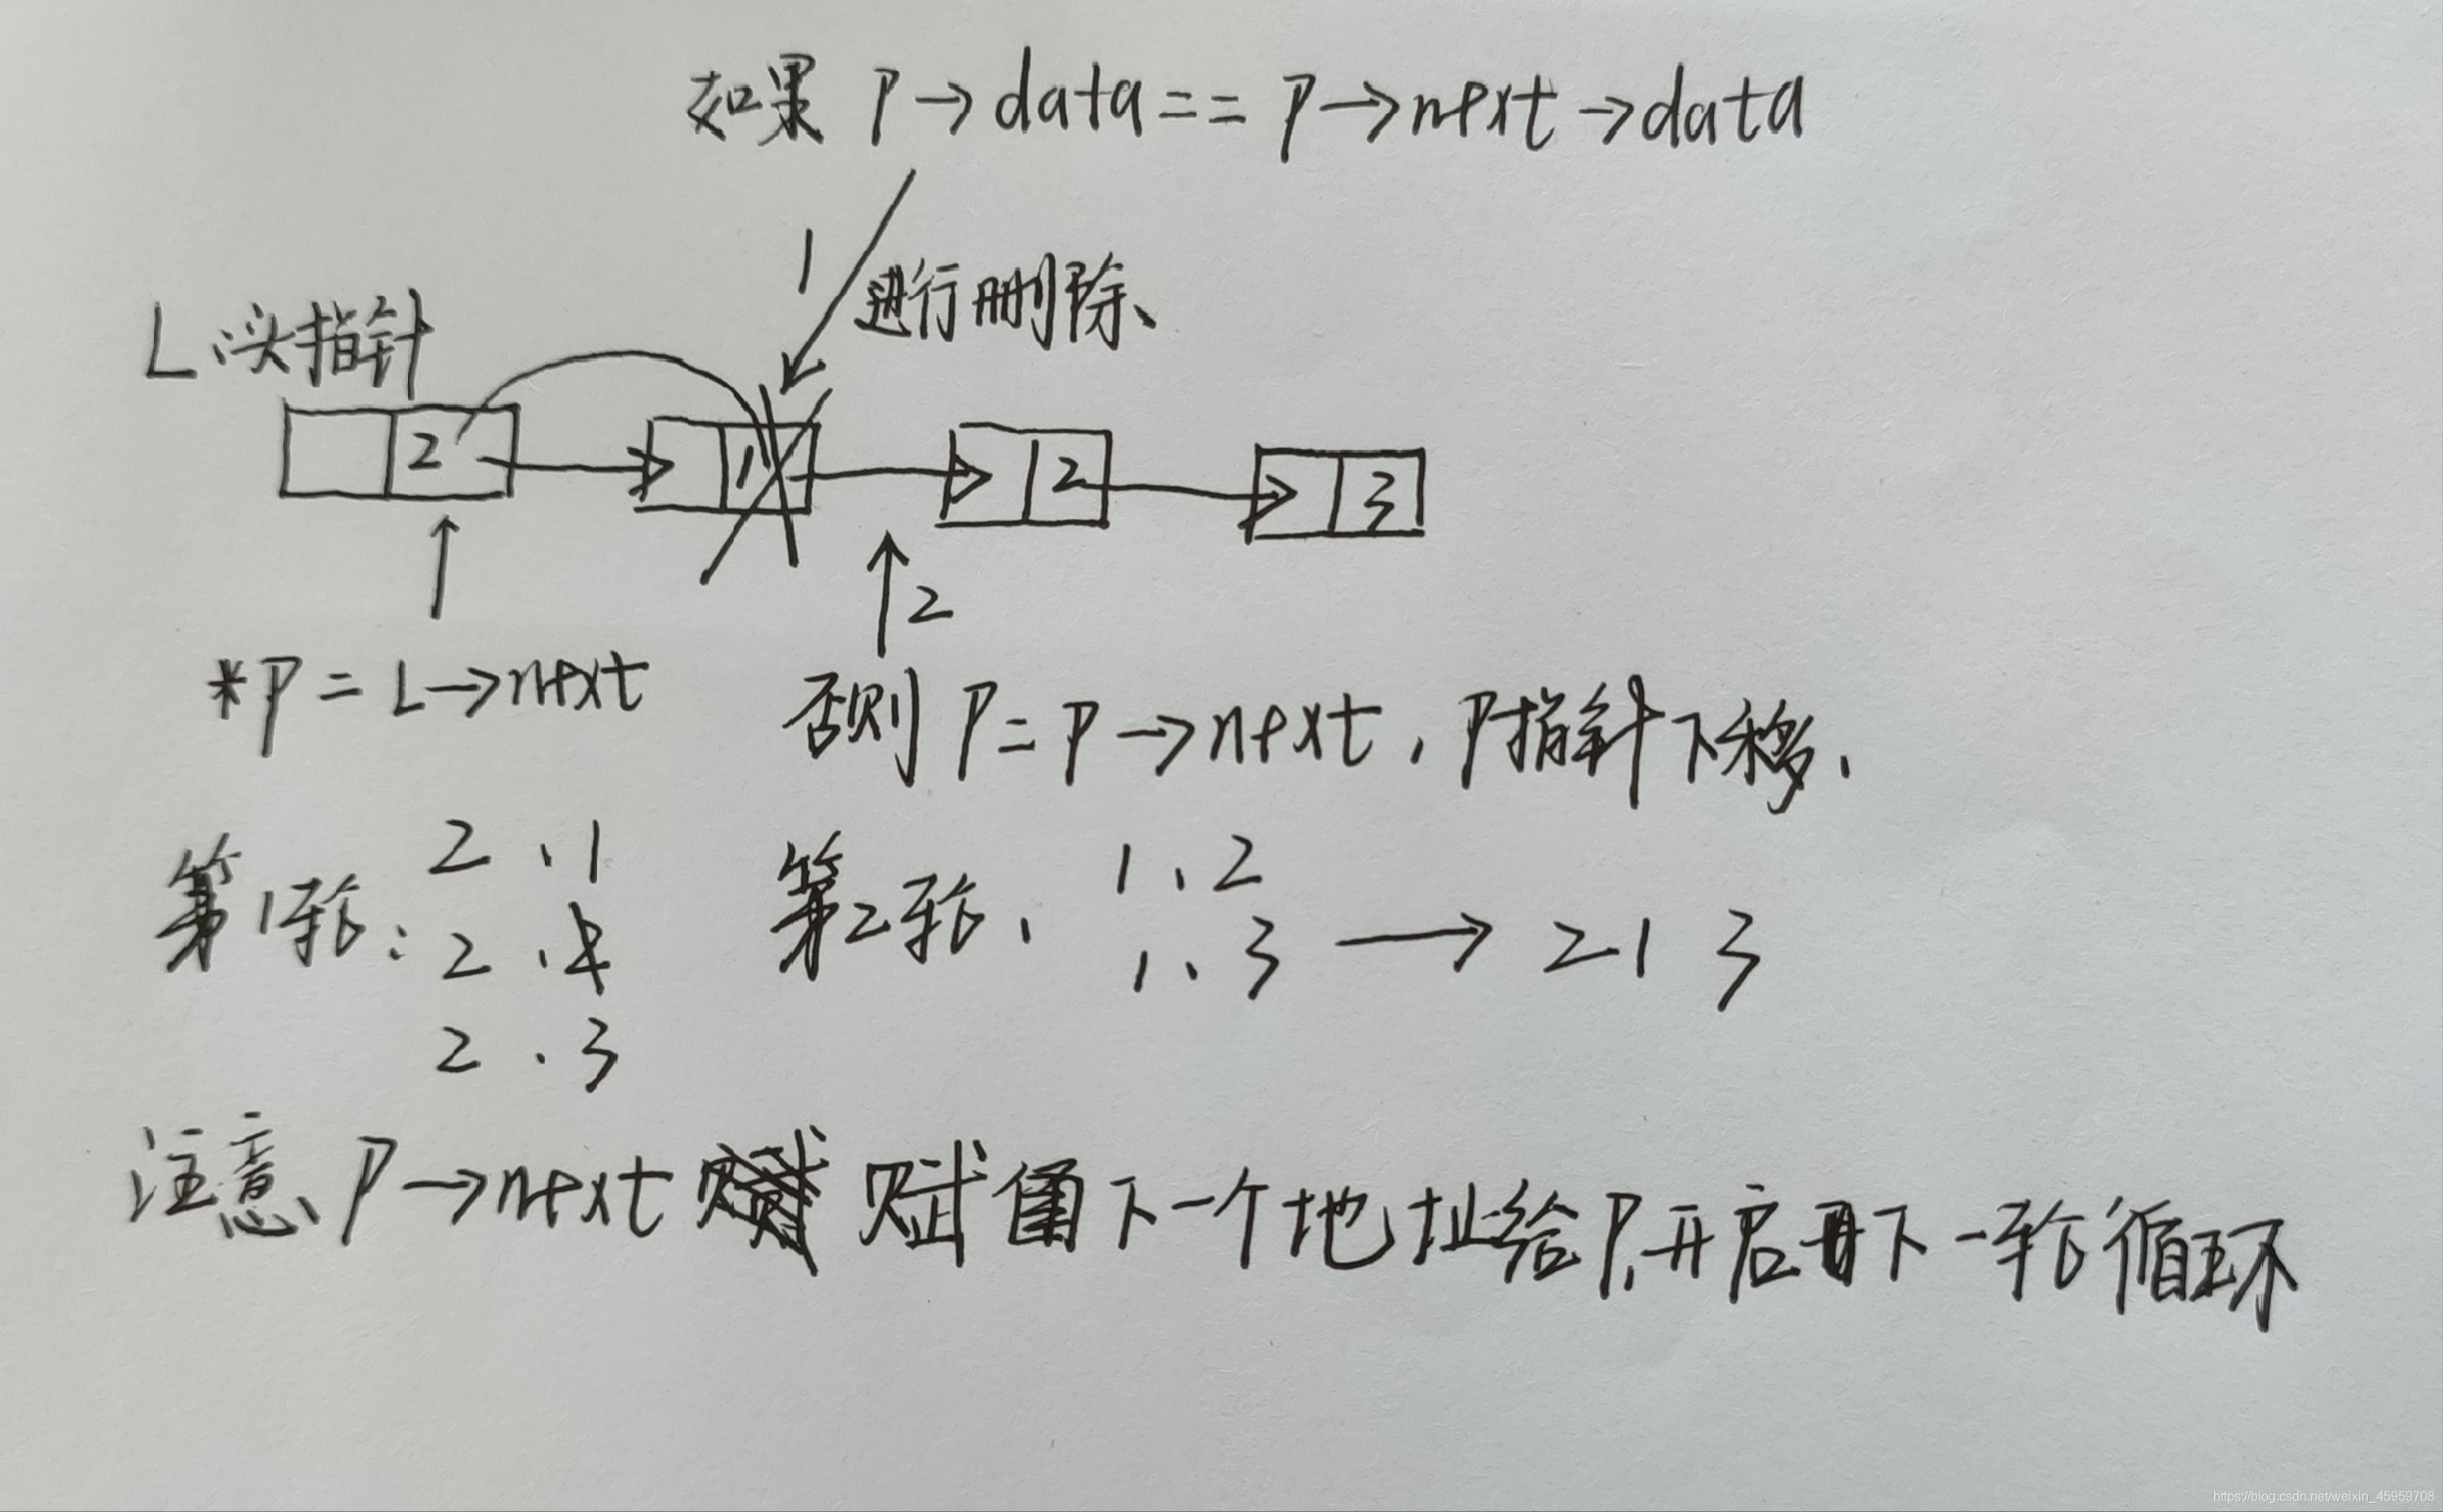 如果 P→data == P→next→data
1
进行删除、
L:头指针
2 1 2 3
2
*P = L→next
否则 P=P→next,P指针下移.
第1轮: 2、1
2、2
2、3
第2轮、 1、2
1、3 → 21 3
注意、P→next 赋值下一个地址给P,开启下一轮循环
https://blog.csdn.net/weixin_45959708